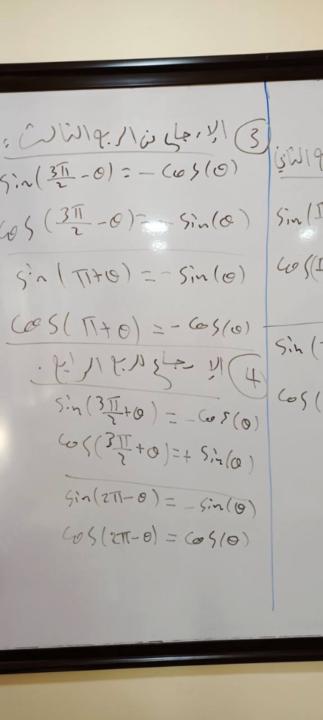 ③ الإرجاع من الربع الثالث :
sin(3π/2 - θ) = - cos(θ)
cos(3π/2 - θ) = - sin(θ)
sin(π+θ) = - sin(θ)
cos(π+θ) = - cos(θ)
④ الإرجاع للربع الرابع .
sin(3π/2 + θ) = - cos(θ)
cos(3π/2 + θ) = + sin(θ)
sin(2π - θ) = - sin(θ)
cos(2π - θ) = cos(θ)
الثاني
sin(
cos(
sin(
cos(